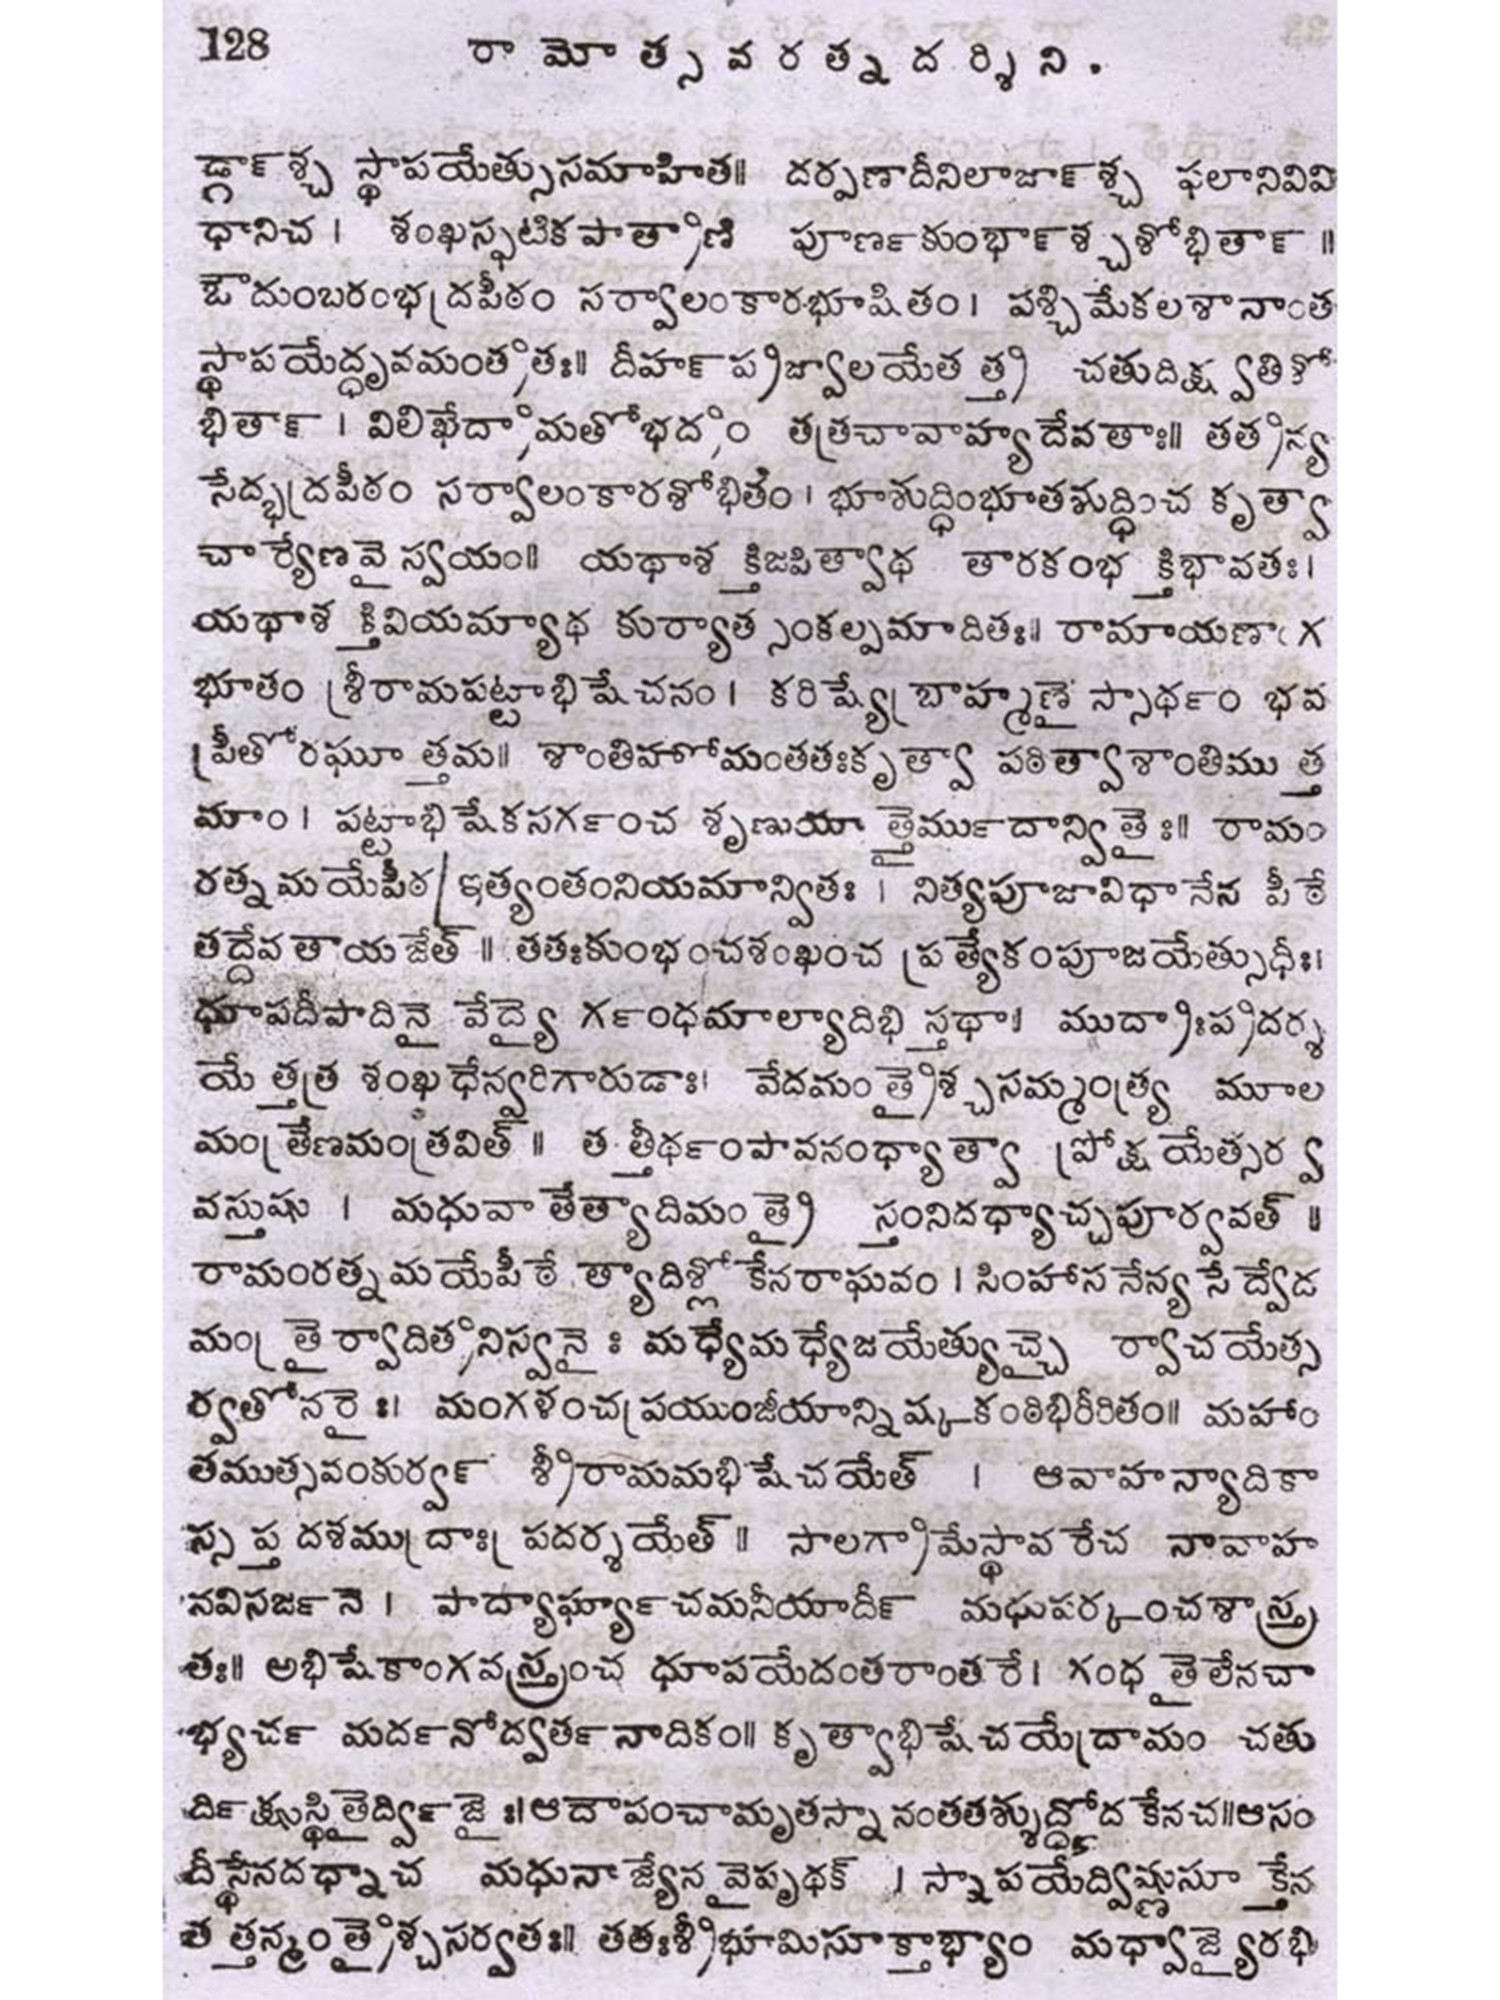 128 రామోత్సవరత్నదర్శిని.
డ్గా౯శ్చ స్థాపయేత్సుసమాహిత॥ దర్పణాదీనిలాజా౯శ్చ ఫలానివివి
ధానిచ। శంఖస్ఫటికపాత్రాణి పూర్ణకుంభా౯శ్చశోభితా౯॥
ఔదుంబరంభద్రపీఠం సర్వాలంకారభూషితం। పశ్చిమేకలశానాంత
స్థాపయేద్ధృవమంత్రతః॥ దీపా౯ ప్రజ్వాలయేత్తత్ర చతుర్దిక్ష్వతిశో
భితా౯। విలిఖేద్రామతోభద్రం తత్రచావాహ్యదేవతాః॥ తత్రన్య
సేద్భద్రపీఠం సర్వాలంకారశోభితం। భూశుద్ధింభూతశుద్ధించ కృత్వా
చార్యేణవై స్వయం॥ యథాశక్తిజపిత్వాథ తారకంభక్తిభావతః।
యథాశక్తివియమ్యాథ కుర్యాత్సంకల్పమాదితః॥ రామాయణాంగ
భూతం శ్రీరామపట్టాభిషేచనం। కరిష్యేబ్రాహ్మణై స్సార్థం భవ
ప్రీతోరఘూత్తమ॥ శాంతిహోమంతతఃకృత్వా పఠిత్వాశాంతిముత్త
మాం। పట్టాభిషేకసర్గంచ శృణుయాత్తైర్ముదాన్వితైః॥ రామం
రత్నమయేపీఠ/ఇత్యంతంనియమాన్వితః। నిత్యపూజావిధానేన పీఠే
తద్దేవతాయజేత్॥ తతఃకుంభంచశంఖంచ ప్రత్యేకంపూజయేత్సుధీః।
ధూపదీపాదినైవేద్యైర్గంధమాల్యాదిభిస్తథా। ముద్రాఃప్రదర్శ
యేత్తత్ర శంఖధేన్వరిగారుడాః। వేదమంత్రైశ్చసమ్మంత్ర్య మూల
మంత్రేణమంత్రవిత్॥ తత్తీర్థంపావనంధ్యాత్వా ప్రోక్షయేత్సర్వ
వస్తుషు। మధువాతేత్యాదిమంత్రైస్తంనిదధ్యాచ్చపూర్వవత్॥
రామంరత్నమయేపీఠేత్యాదిశ్లోకేనరాఘవం। సింహాసనేన్యసేద్వేద
మంత్రైర్వాదిత్రనిస్వనైః మధ్యేమధ్యేజయేత్యుచ్చైర్వాచయేత్స
ర్వతోనరైః। మంగళంచప్రయుంజీయాన్నిష్కకంఠిభిరీరితం॥ మహాం
తముత్సవంకుర్వ౯ శ్రీరామమభిషేచయేత్। ఆవాహన్యాదికా
స్సప్తదశముద్రాఃప్రదర్శయేత్॥ సాలగ్రామేస్థావరేచ నావాహ
నవిసర్జనే। పాద్యార్ఘ్యాచమనీయాదీ౯ మధుపర్కంచశాస్త్ర
తః॥ అభిషేకాంగవస్త్రంచ ధూపయేదంతరాంతరే। గంధతైలేనచా
భ్యర్చ మర్దనోద్వర్తనాదికం॥ కృత్వాభిషేచయేద్రామం చతు
ర్దిక్షుస్థితైర్ద్విజైః।ఆదౌపంచామృతస్నానంతతశ్శుద్ధోదకేనచ॥ఆసం
దీస్థేనదధ్నాచ మధునాజ్యేనవైపృథక్। స్నాపయేద్విష్ణుసూక్తేన
తత్తన్మంత్రైశ్చసర్వతః॥ తతఃశ్రీభూమిసూక్తాభ్యాం మధ్వాజ్యైరభి